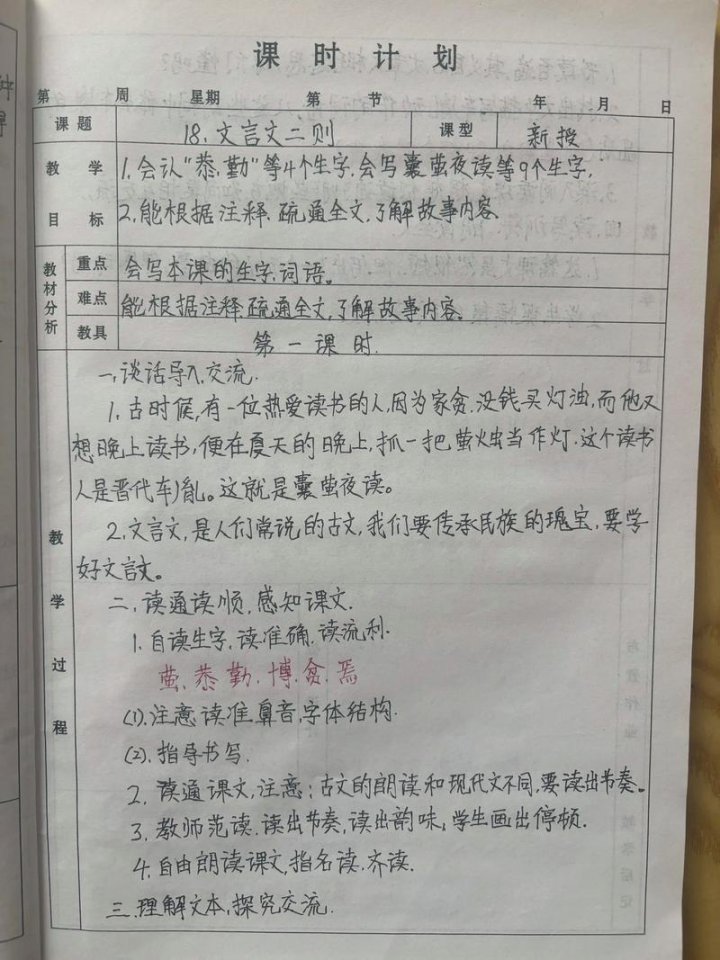 课时计划
第 周 星期 第 节 年 月 日
课题 18.文言文二则 课型 新授
教学目标
1.会认“恭、勤”等4个生字,会写囊萤夜读等9个生字.
2.能根据注释.疏通全文,了解故事内容.
教材分析
重点 会写本课的生字.词语。
难点 能根据注释.疏通全文,了解故事内容。
教具
第一课时.
教学过程
一、谈话导入,交流.
1.古时候,有一位热爱读书的人,因为家贫.没钱买灯油,而他又
想晚上读书,便在夏天的晚上,抓一把萤火虫当作灯.这个读书
人是晋代车胤。这就是囊萤夜读。
2.文言文,是人们常说的古文,我们要传承民族的瑰宝,要学
好文言文。
二、读通读顺,感知课文.
1.自读生字,读准确.读流利.
萤.恭.勤.博.贫.焉
(1).注意读准鼻音,字体结构.
(2).指导书写.
2.读通课文,注意:古文的朗读和现代文不同,要读出节奏。
3.教师范读.读出节奏,读出韵味,学生画出停顿.
4.自由朗读课文,指名读.齐读.
三.理解文本,探究交流.